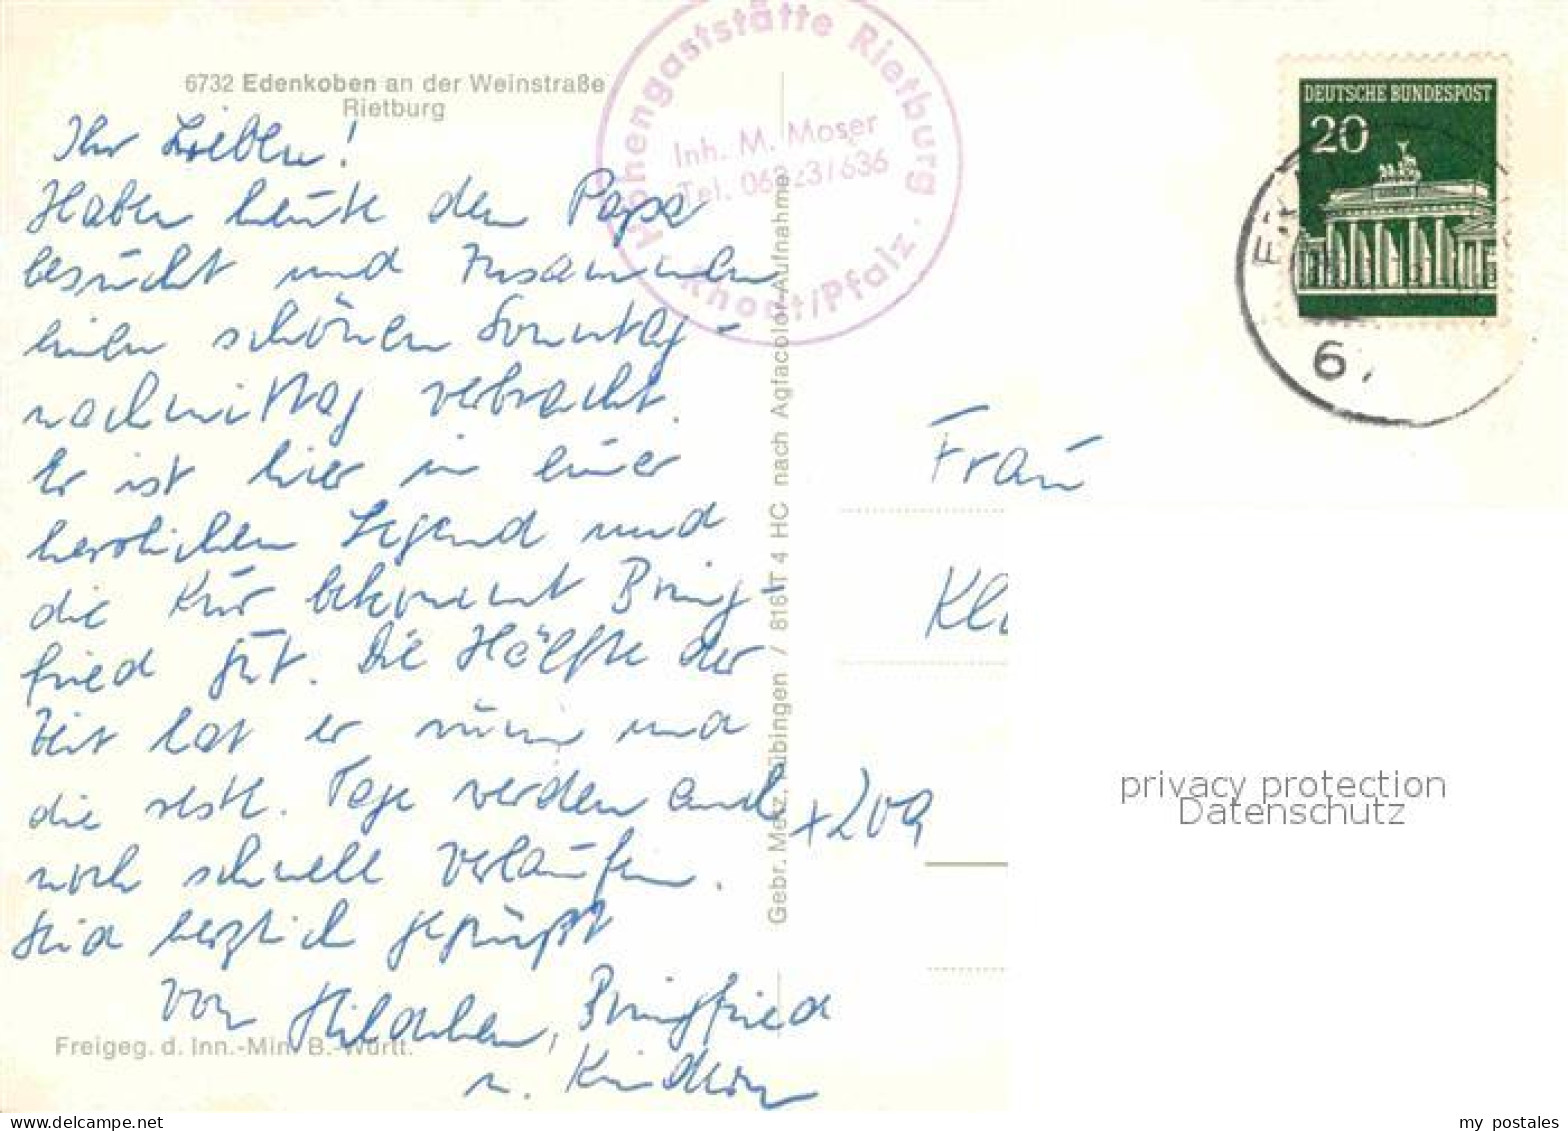 6732 Edenkoben an der Weinstraße
Rietburg
Höhengaststätte Rietburg
Inh. M. Moser
Rhodt/Pfalz
DEUTSCHE BUNDESPOST
20
67
Ihr Lieben!
Haben heute den Papa
besucht und zusammen
einen schönen Sonntag-
nachmittag verbracht.
Er ist hier in einer
herrlichen Gegend und
die Kur bekommt Bring-
fried gut. Die Hälfte der
Zeit hat er nun um und
die restl. Tage werden auch
noch schnell verlaufen.
Seid herzlich gegrüßt
von Hildchen, Bringfried
u. Kindern
Gebr. Metz, Tübingen / 816 T 4 HC nach Agfacolor-Aufnahme
Freigeg. d. Inn.-Min. B.-Württ.
Frau
privacy protection
Datenschutz
my postales